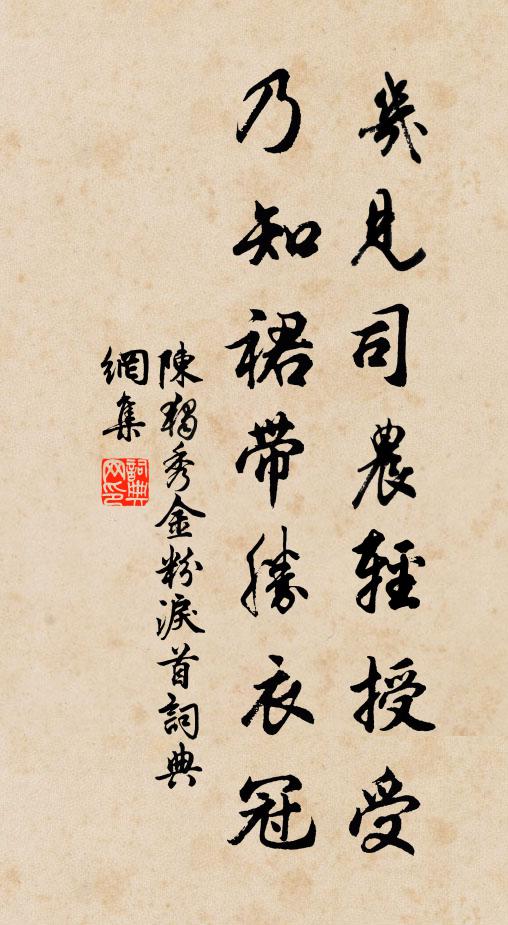 幾見司農輕授受
乃知裙帶勝衣冠
陳獨秀金粉淚首詞典
網集
詞典
网印